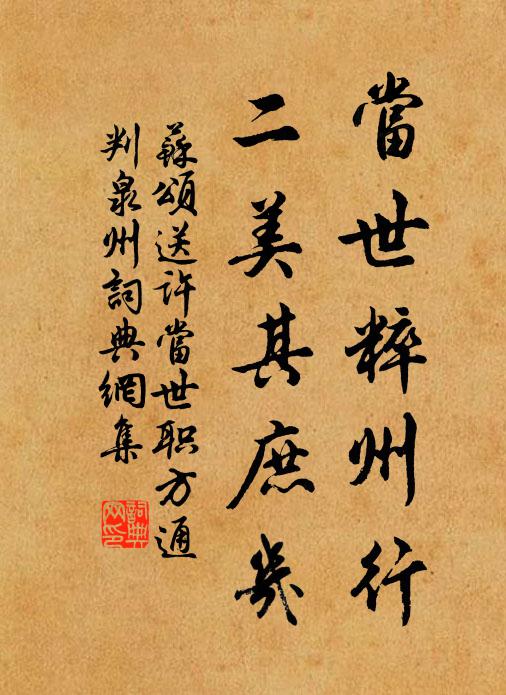 當世粹州行
二美其庶幾
蘇頌送許當世职方通
判泉州詞典網集
詞典网印